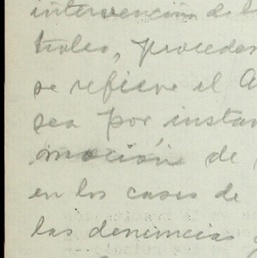 intervención de l
trales, proceder
se refiere el A
sea por instan
moción de
en los casos de
las denuncias y